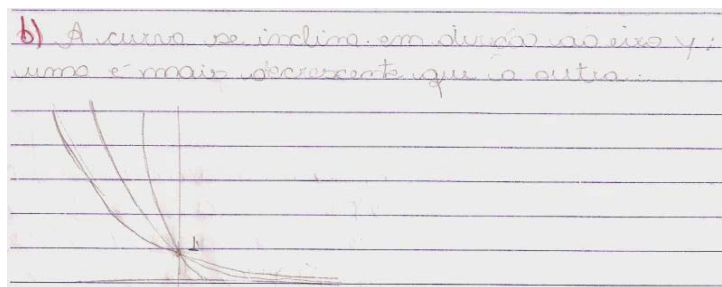 b) A curva se inclina em direção ao eixo y:
uma é mais decrescente que a outra.
1